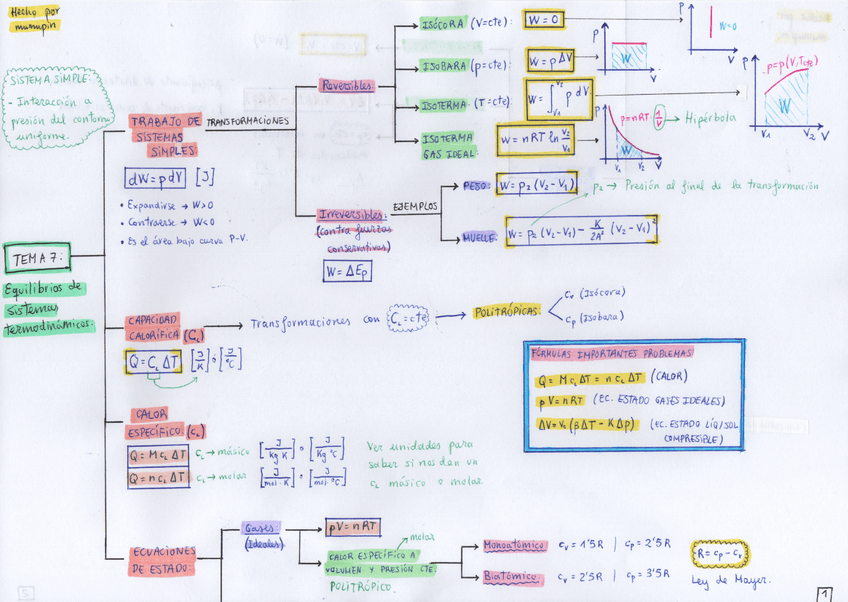 Hecho por
munupin
SISTEMA SIMPLE:
- Interacción a
presión del contorno
uniforme.
TRABAJO DE
SISTEMAS
SIMPLES:
TRANSFORMACIONES
dW = p dV [J]
• Expandirse → W>0
• Contraerse → W<0
• Es el área bajo curva P-V.
Reversibles:
ISÓCORA (V=cte):
W = 0
P
W=0
V
ISOBARA (p=cte):
W = p ΔV
P
W
V
ISOTERMA (T=cte):
W = ∫ p dV
V₂
V₁
P
p=p(V,Tcte)
W
V₁ V₂ V
ISOTERMA
GAS IDEAL:
W = nRT ln V₂/V₁
P
p=nRT·1/V → Hipérbola
W
V
Irreversibles:
(contra fuerzas
conservativas)
W = ΔEp
EJEMPLOS
PESO:
W = p₂ (V₂-V₁)
p₂ → Presión al final de la transformación
MUELLE:
W = p₂ (V₂-V₁) - K/2A² (V₂-V₁)²
TEMA 7:
Equilibrios de
sistemas
termodinámicos:
CAPACIDAD
CALORÍFICA (C꜀)
Q = C꜀ ΔT [J/K] ó [J/ºC]
Transformaciones con C꜀=cte
POLITRÓPICAS:
cv (Isócora)
cp (Isobara)
FÓRMULAS IMPORTANTES PROBLEMAS:
Q = M c꜀ ΔT = n c꜀ ΔT (CALOR)
pV = nRT (EC. ESTADO GASES IDEALES)
ΔV = V₀ (βΔT - KΔp) (EC. ESTADO LÍQ/SOL
COMPRESIBLE)
CALOR
ESPECÍFICO: (c꜀)
Q = M c꜀ ΔT c꜀ → másico [J/Kg K] o [J/Kg ºC]
Q = n c꜀ ΔT c꜀ → molar [J/mol·K] o [J/mol·ºC]
Ver unidades para
saber si nos dan un
c꜀ másico o molar
ECUACIONES
DE ESTADO:
Gases:
(Ideales)
pV = nRT
molar
CALOR ESPECÍFICO A
VOLUMEN Y PRESIÓN CTE.
POLITRÓPICO.
Monoatómico cv = 1'5R | cp = 2'5R
Biatómico cv = 2'5R | cp = 3'5R
R = cp - cv
Ley de Mayer.
1